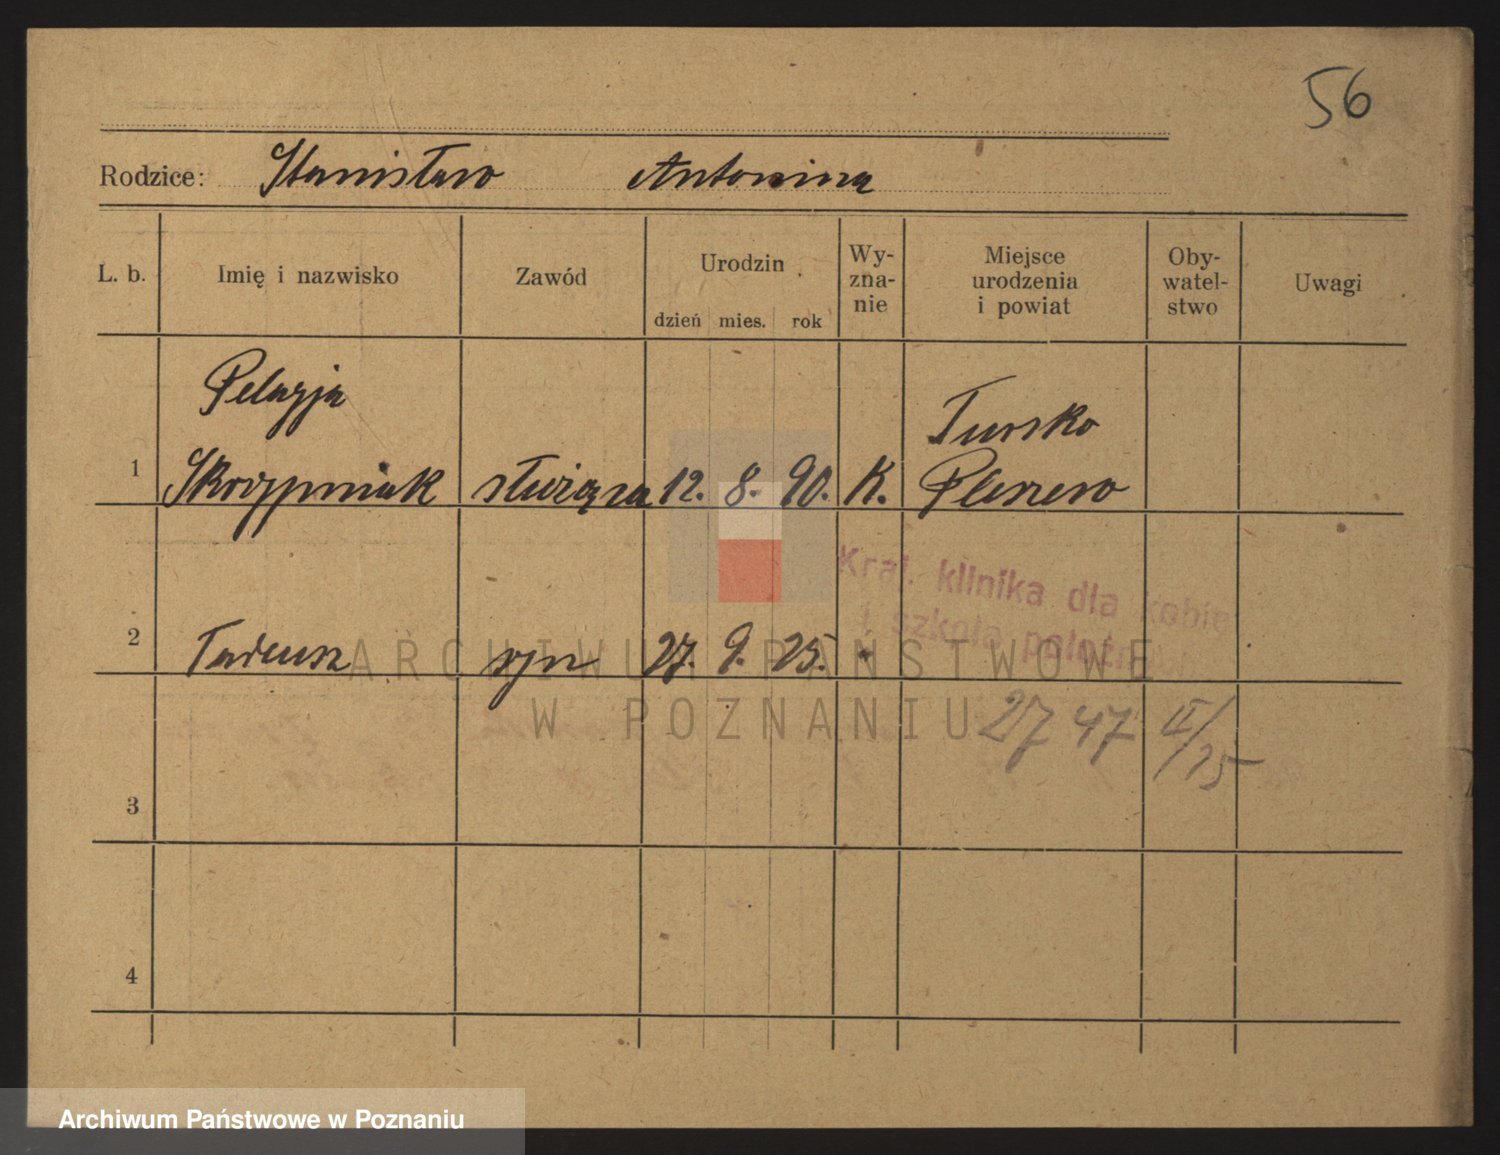 56
Rodzice: Stanisław Antonina
L. b. Imię i nazwisko Zawód Urodzin dzień mies. rok Wy-zna-nie Miejsce urodzenia i powiat Oby-watel-stwo Uwagi
Pelagja Tursko
1 Skrzypniak służąca 12. 8. 90. K. Pleszew
Kraj. klinika dla kobie
i szkoła położn
2 Tadeusz syn 27. 9. 25.
ARCHIWUM PAŃSTWOWE
W POZNANIU
27 47 II/25
3
4
Archiwum Państwowe w Poznaniu